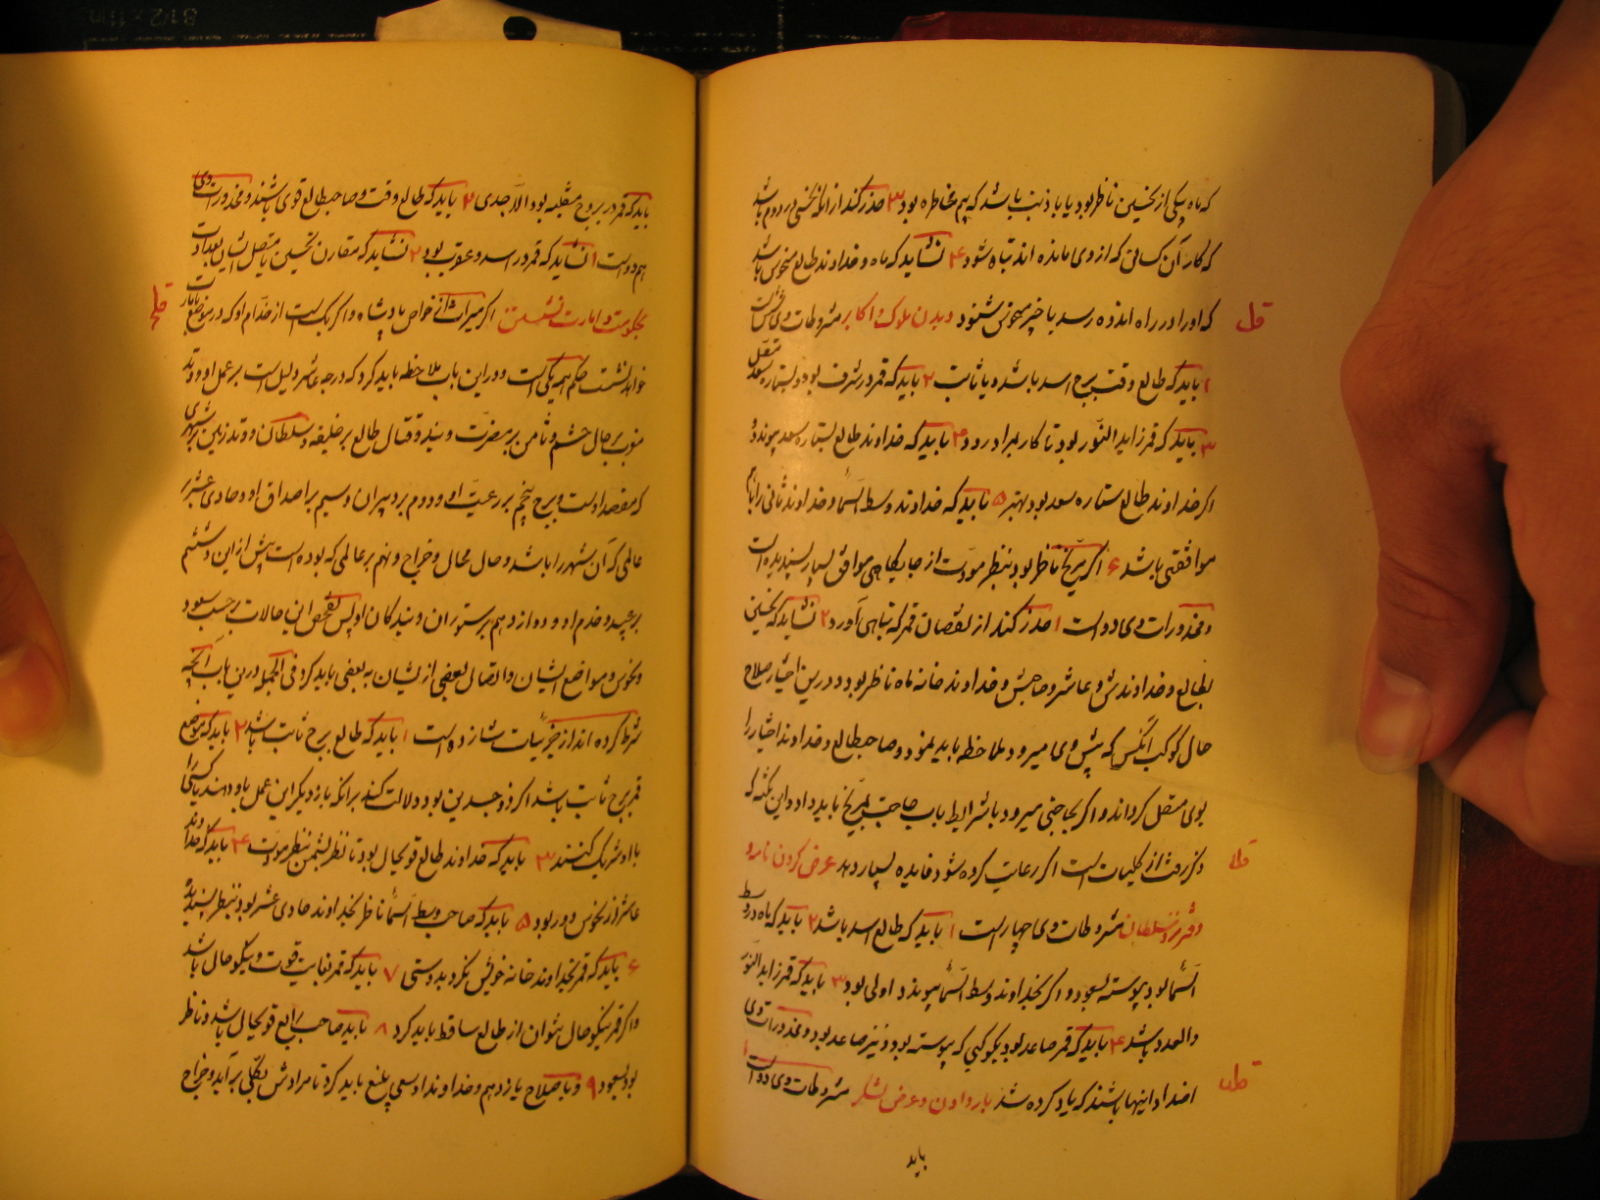 که ماه بیکی از نحسین ناظر بود یا با ذنب باشد که بیم مخاطره بود ۳ حذر کند از آنکه نحسی در دوم باشد
که کار آن کسانی که از وی مانده اند تباه شود ۴ نشاید که ماه و خداوند طالع منحوس باشد
که او را در راه اندوه رسد یا خبر مهوش شنود دیدن ملوک و اکابر مشروطات وی شش است
قل
۱ باید که طالع وقت برج اسد باشد و یا ثابت ۲ باید که قمر در شرف بود و بستاره سعد متصل
۳ باید که قمر زاید النور بود تا کار بمراد رود ۴ باید که خداوند طالع بستاره سعد پیوندد و
اگر خداوند طالع ستاره سعد بود بهتر ۵ باید که خداوند وسط السما و خداوند ثانی را باهم
موافقتی باشد ۶ اگر مریخ ناظر بود بنظر مودت از جایگاهی موافق بسیار پسندیده است
و محذورات وی دو است ۱ حذر کند از نقصان قمر که تباهی آورد ۲ نشاید که نحسین
بطالع و خداوندش و عاشر و صاحبش و خداوند خانه ماه ناظر بود و درین اختیار صلاح
حال کوکب آنکس که پیش وی میرود ملاحظه باید نمود و صاحب طالع و خداوند اختیار را
بوی متصل گرداند و اگر بجاجتی میرود بشرایط باب حاجت نیز باید داد و این نکته که
ذکر رفت از کلیات است اگر رعایت کرده شود فایده بسیار دهد عرض کردن نامه و
قلا
دفتر نزد سلطان مشروطات وی چهار است ۱ باید که طالع اسد باشد ۲ باید که ماه در وسط
السما بود پیوسته بسعود و اگر بخداوند وسط السما پیوندد اولی بود ۳ باید که قمر زاید النور
والعدد باشد ۴ باید که قمر صاعد بود بکوکبی که پیوسته بود و نیز صاعد بود و محذورات وی
اضداد اینها باشند که یاد کرده شد بار دادن و عرض لشکر مشروطات وی دو است ۱
قلب
باید
باید که قمر در بروج منقلبه بود الا جدی ۲ باید که طالع وقت و صاحب طالع قوی باشند و محذورات وی
هم دو است ۱ نشاید که قمر در اسد و عقرب بود ۲ نشاید که مقارن نحسین یا متصل ایشان بعداوت
بحکومت و امارت نشستن اگر میراث از خواص پادشاه و اگر یک است از خدام او که در موضع امارت
قلج
خواهد نشست حکم همه یکی است و در این باب ملاحظه باید کرد که درجه عاشر دلیل است بر عمل او و وتد
غرب بر حال حشم و ثامن بر مضرت و بنه و قتال طالع بر خلیفه و سلطان و وتد زمین بر شهری
که مقصد اوست و برج پنجم بر رعیت او و دوم بر دبیران و سیم بر اصداق او و حادی عشر بر
عالمی که آن شهر را باشد و حال محال و خراج و نهم بر عاملی که بوده است پیش از این و ششم
بر عبید و خدم او و دوازدهم بر ستوران و بندگان او پس تفحص این حالات بر حسب سعود
و نحوس و مواضع ایشان و اتصال بعضی از ایشان به بعضی باید کرد و فی الجمله درین باب آنچه
شرط کرده اند از جزییات شانزده است ۱ باید که طالع برج ثابت باشد ۲ باید که موضع
قمر برج ثابت باشد اگر ذوجسدین بود دلالت کند بر آنکه باز دیگر این عمل باو دهند یا کسی را
با او شریک کنند ۳ باید که خداوند طالع قویحال بود تا نظر بشمس بنظر مودت ۴ باید که خداوند
عاشر از نحوس دور بود ۵ باید که صاحب وسط السما ناظر بخداوند حادی عشر بود بنظر پسندیده
۶ باید که قمر بخداوند خانه خویش نگرد بدوستی ۷ باید که قمر بغایت قوت و نیکوحال باشد
و اگر قمر نیکوحال نتوان از طالع ساقط باید کرد ۸ باید صاحب رابع قویحال باشد و ناظر
بود بسعود ۹ و باصلاح یازدهم و خداوند او سعی بلیغ باید کرد تا مرادش بکلی برآید و خراج